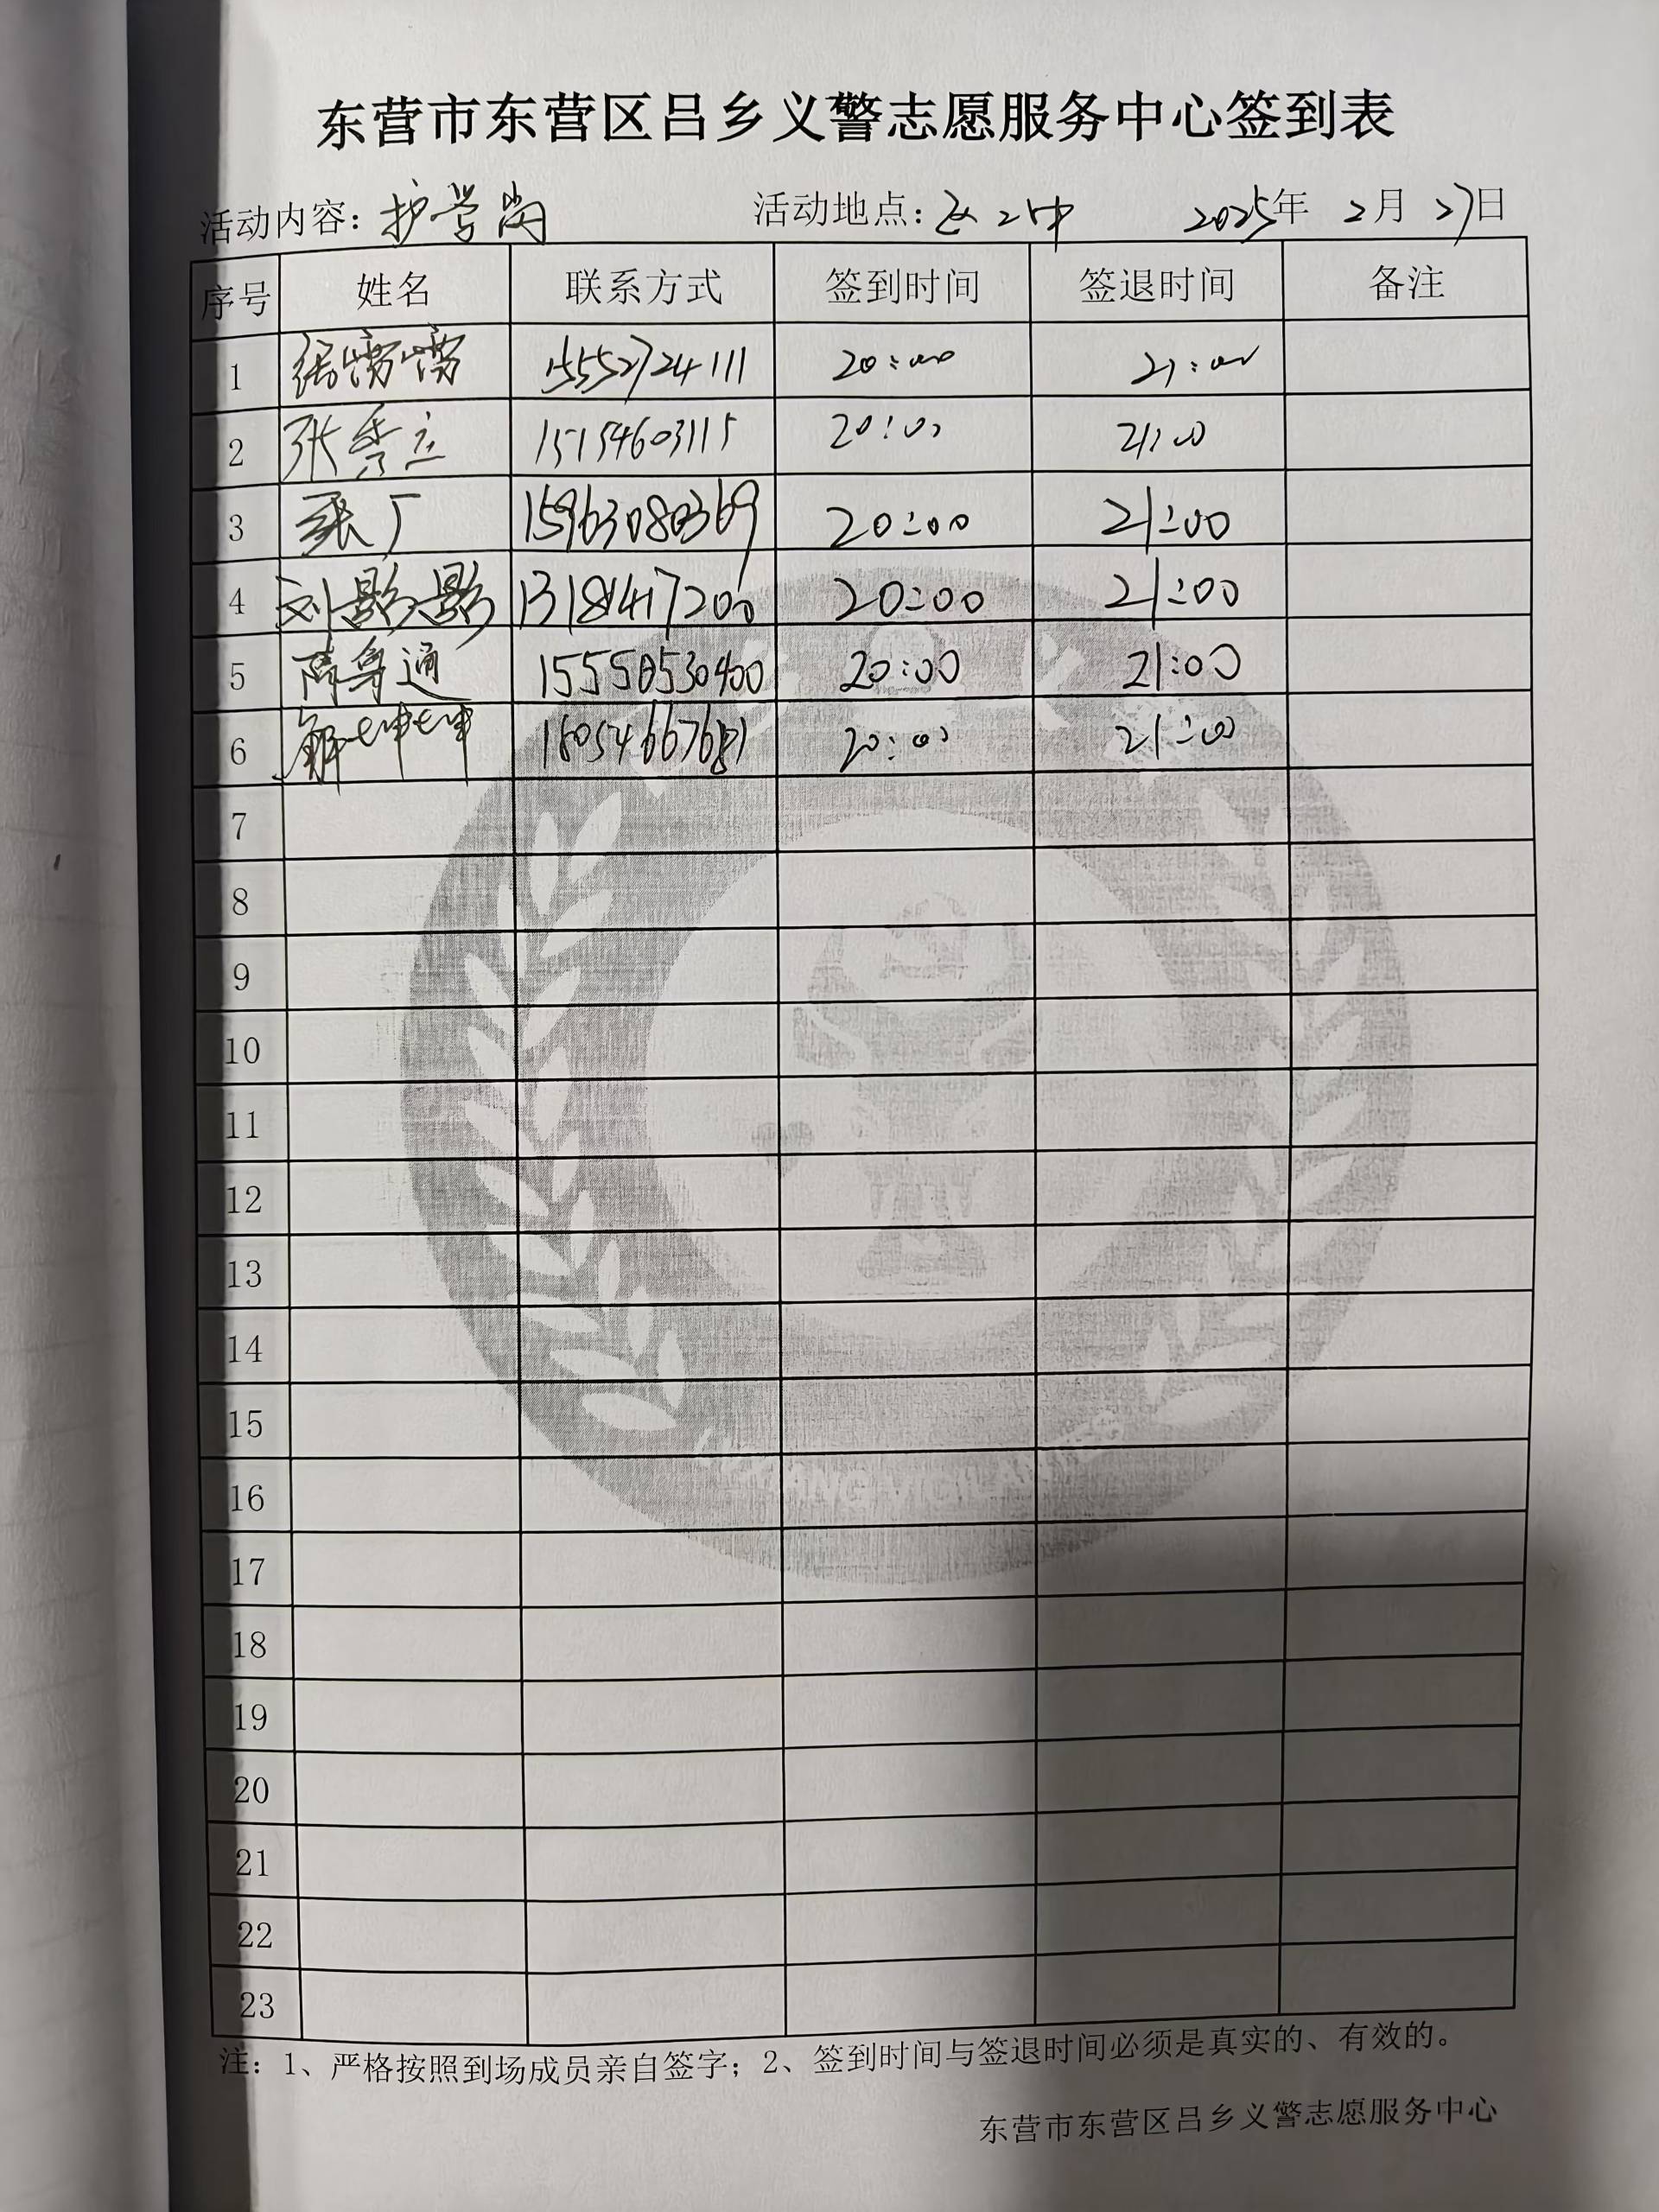 东营市东营区吕乡义警志愿服务中心签到表
活动内容：护学岗 活动地点：区二中 2025年 2月 27日
序号 姓名 联系方式 签到时间 签退时间 备注
1 15552724111 20:00 21:00
2 张秀立 15154603115 20:00 21:00
3 张广 15963080369 20:00 21:00
4 刘影影 13181417200 20:00 21:00
5 鲁通 15558530400 20:00 21:00
6 解坤坤 20:00 21:00
7
8
9
10
11
12
13
14
15
16
17
18
19
20
21
22
23
注：1、严格按照到场成员亲自签字；2、签到时间与签退时间必须是真实的、有效的。
东营市东营区吕乡义警志愿服务中心